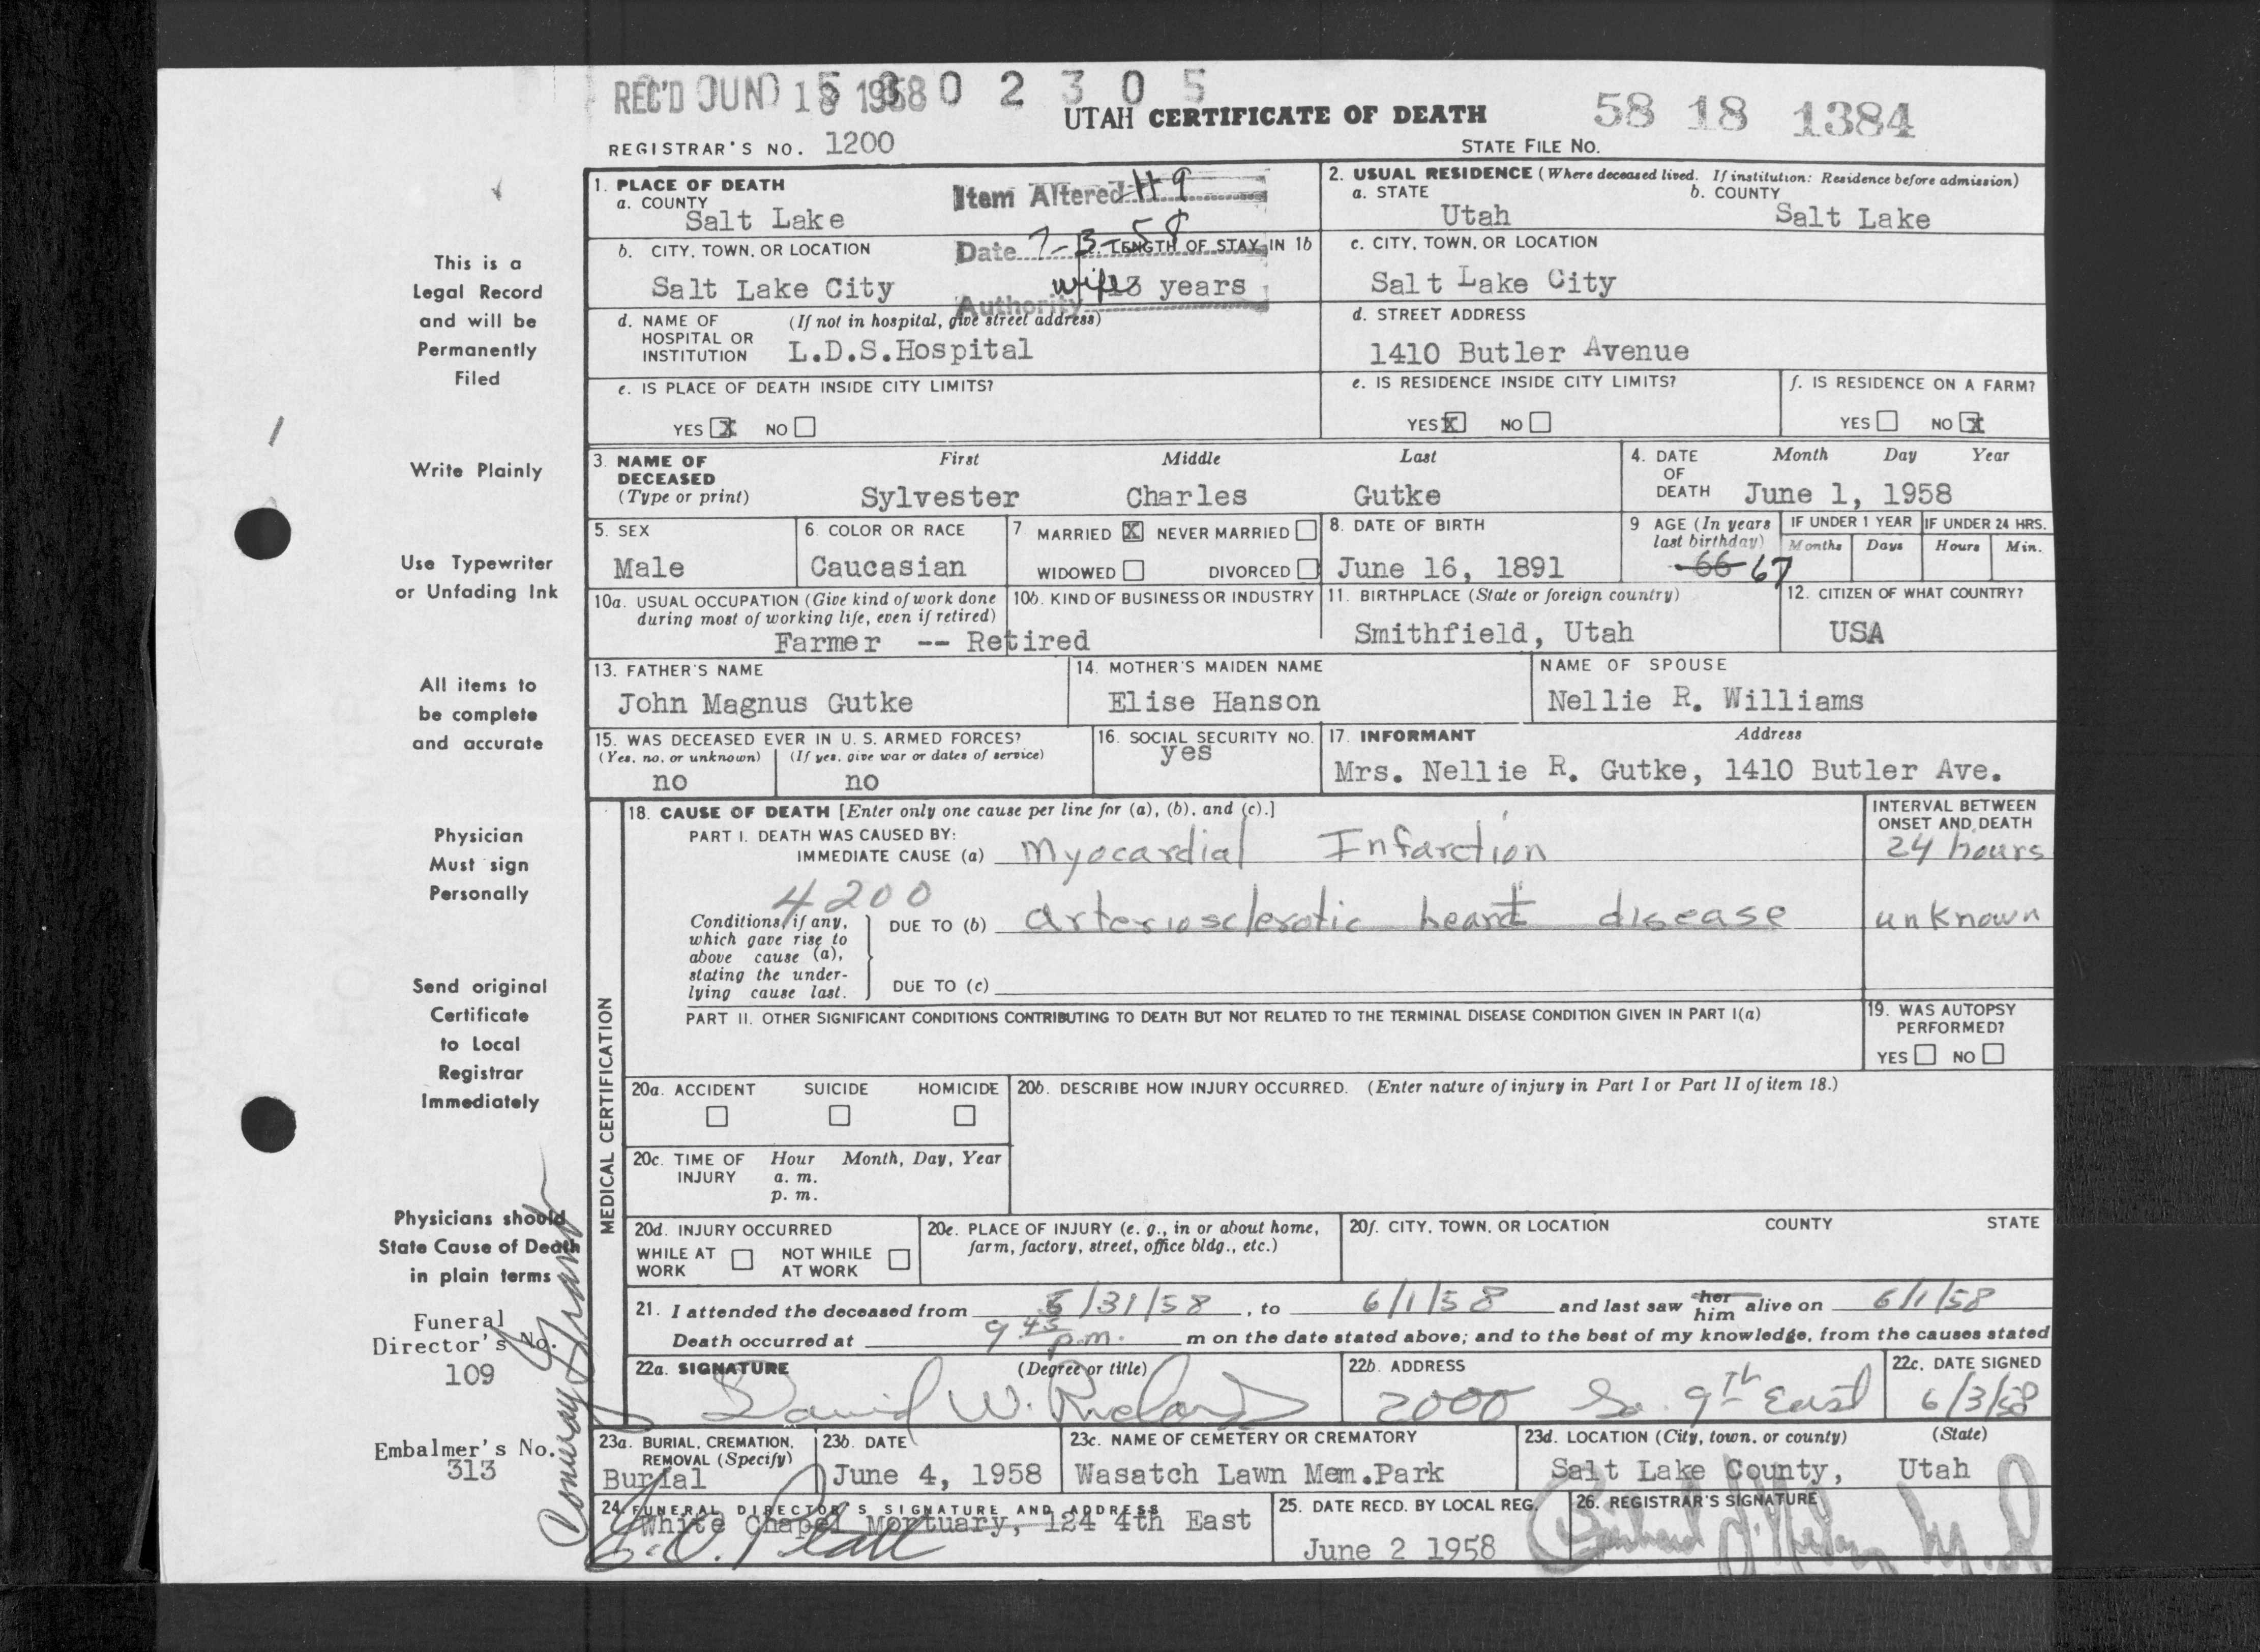 REC'D JUN 18 1958 0 2 3 0 5
UTAH CERTIFICATE OF DEATH
58 18 1384
REGISTRAR'S NO. 1200
STATE FILE No.
This is a
Legal Record
and will be
Permanently
Filed
Write Plainly
Use Typewriter
or Unfading Ink
All items to
be complete
and accurate
Physician
Must sign
Personally
Send original
Certificate
to Local
Registrar
Immediately
Physicians should
State Cause of Death
in plain terms
Funeral
Director's No.
109
Embalmer's No.
313
1. PLACE OF DEATH
a. COUNTY
Salt Lake
Item Altered # 9
Date 7-3-58
Authority wife
b. CITY, TOWN, OR LOCATION
Salt Lake City
c. LENGTH OF STAY IN 1b
13 years
d. NAME OF HOSPITAL OR INSTITUTION (If not in hospital, give street address)
L.D.S.Hospital
e. IS PLACE OF DEATH INSIDE CITY LIMITS?
YES X NO
2. USUAL RESIDENCE (Where deceased lived. If institution: Residence before admission)
a. STATE b. COUNTY
Utah Salt Lake
c. CITY, TOWN, OR LOCATION
Salt Lake City
d. STREET ADDRESS
1410 Butler Avenue
e. IS RESIDENCE INSIDE CITY LIMITS?
YES X NO
f. IS RESIDENCE ON A FARM?
YES NO X
3. NAME OF DECEASED (Type or print)
First Middle Last
Sylvester Charles Gutke
4. DATE OF DEATH Month Day Year
June 1, 1958
5. SEX
Male
6. COLOR OR RACE
Caucasian
7. MARRIED X NEVER MARRIED
WIDOWED DIVORCED
8. DATE OF BIRTH
June 16, 1891
9 AGE (In years last birthday)
66 67
IF UNDER 1 YEAR IF UNDER 24 HRS.
Months Days Hours Min.
10a. USUAL OCCUPATION (Give kind of work done
during most of working life, even if retired)
10b. KIND OF BUSINESS OR INDUSTRY
Farmer -- Retired
11. BIRTHPLACE (State or foreign country)
Smithfield, Utah
12. CITIZEN OF WHAT COUNTRY?
USA
13. FATHER'S NAME
John Magnus Gutke
14. MOTHER'S MAIDEN NAME
Elise Hanson
NAME OF SPOUSE
Nellie R. Williams
15. WAS DECEASED EVER IN U. S. ARMED FORCES?
(Yes, no, or unknown) (If yes, give war or dates of service)
no no
16. SOCIAL SECURITY NO.
yes
17. INFORMANT Address
Mrs. Nellie R. Gutke, 1410 Butler Ave.
MEDICAL CERTIFICATION
18. CAUSE OF DEATH [Enter only one cause per line for (a), (b), and (c).]
INTERVAL BETWEEN
ONSET AND DEATH
PART I. DEATH WAS CAUSED BY:
IMMEDIATE CAUSE (a) Myocardial Infarction 24 hours
4200
Conditions, if any,
which gave rise to
above cause (a),
stating the under-
lying cause last.
DUE TO (b) arteriosclerotic heart disease unknown
DUE TO (c)
PART II. OTHER SIGNIFICANT CONDITIONS CONTRIBUTING TO DEATH BUT NOT RELATED TO THE TERMINAL DISEASE CONDITION GIVEN IN PART I(a)
19. WAS AUTOPSY
PERFORMED?
YES NO
20a. ACCIDENT SUICIDE HOMICIDE
20b. DESCRIBE HOW INJURY OCCURRED. (Enter nature of injury in Part I or Part II of item 18.)
20c. TIME OF INJURY Hour Month, Day, Year
a. m.
p. m.
20d. INJURY OCCURRED
WHILE AT WORK NOT WHILE AT WORK
20e. PLACE OF INJURY (e. g., in or about home,
farm, factory, street, office bldg., etc.)
20f. CITY, TOWN, OR LOCATION COUNTY STATE
21. I attended the deceased from 5/31/58, to 6/1/58 and last saw her him alive on 6/1/58
Death occurred at 9 45 p.m. m on the date stated above; and to the best of my knowledge, from the causes stated
22a. SIGNATURE (Degree or title)
David W.
22b. ADDRESS
2000 So. 9th East
22c. DATE SIGNED
6/3/58
23a. BURIAL, CREMATION,
REMOVAL (Specify)
Burial
23b. DATE
June 4, 1958
23c. NAME OF CEMETERY OR CREMATORY
Wasatch Lawn Mem.Park
23d. LOCATION (City, town, or county) (State)
Salt Lake County, Utah
24. FUNERAL DIRECTOR'S SIGNATURE AND ADDRESS
White Chapel Mortuary, 124 4th East
25. DATE RECD. BY LOCAL REG.
June 2 1958
26. REGISTRAR'S SIGNATURE